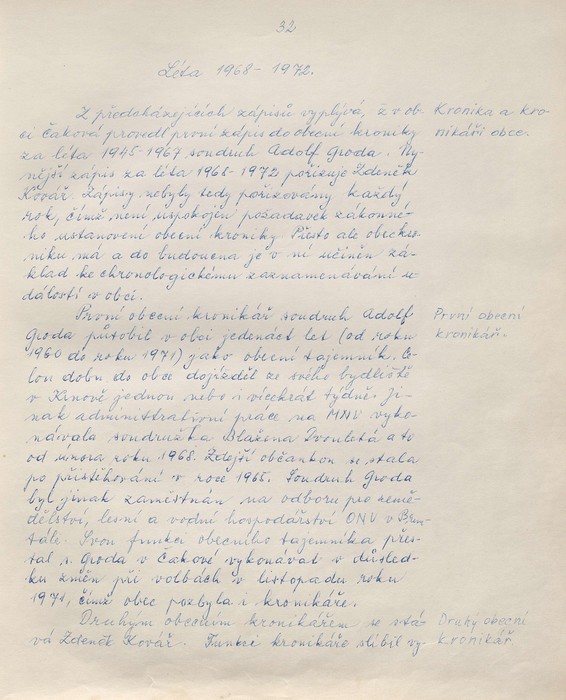 32
Léta 1968 - 1972.
Z předcházejících zápisů vyplývá, ž v ob-
ci Čaková provedl první zápis do obecní kroniky
za léta 1945-1967 soudruh Adolf Groda. Ny-
nější zápis za léta 1968-1972 pořizuje Zdeněk
Kovář. Zápisy nebyly tedy pořizovány každý
rok, čímž není uspokojen požadavek zákonné-
ho ustanovení obecní kroniky. Přesto ale obec kro-
niku má a do budoucna je v ní učiněn zá-
klad ke chronologickému zaznamenávání u-
dálostí v obci.
Kronika a kro-
nikáři obce.
První obecní kronikář soudruh Adolf
Groda působil v obci jedenáct let (od roku
1960 do roku 1971) jako obecní tajemník. Co-
lou dobu do obce dojížděl ze svého bydliště
v Krnově jednou nebo i vícekrát týdně. Ji-
nak administrativní práce na MNV vyko-
návala soudružka Blažena Dvouletá a to
od února roku 1968. Zdejší občankou se stala
po přistěhování v roce 1965. Soudruh Groda
byl jinak zaměstnán na odboru pro země-
dělství, lesní a vodní hospodářství ONV v Brun-
tále. Svou funkci obecního tajemníka přes-
tal s. Groda v Čakové vykonávat v důsled-
ku změn při volbách v listopadu roku
1971, čímž obec pozbyla i kronikáře.
První obecní
kronikář.
Druhým obecním kronikářem se stá-
vá Zdeněk Kovář. Funkci kronikáře slíbil vy-
Druhý obecní
kronikář